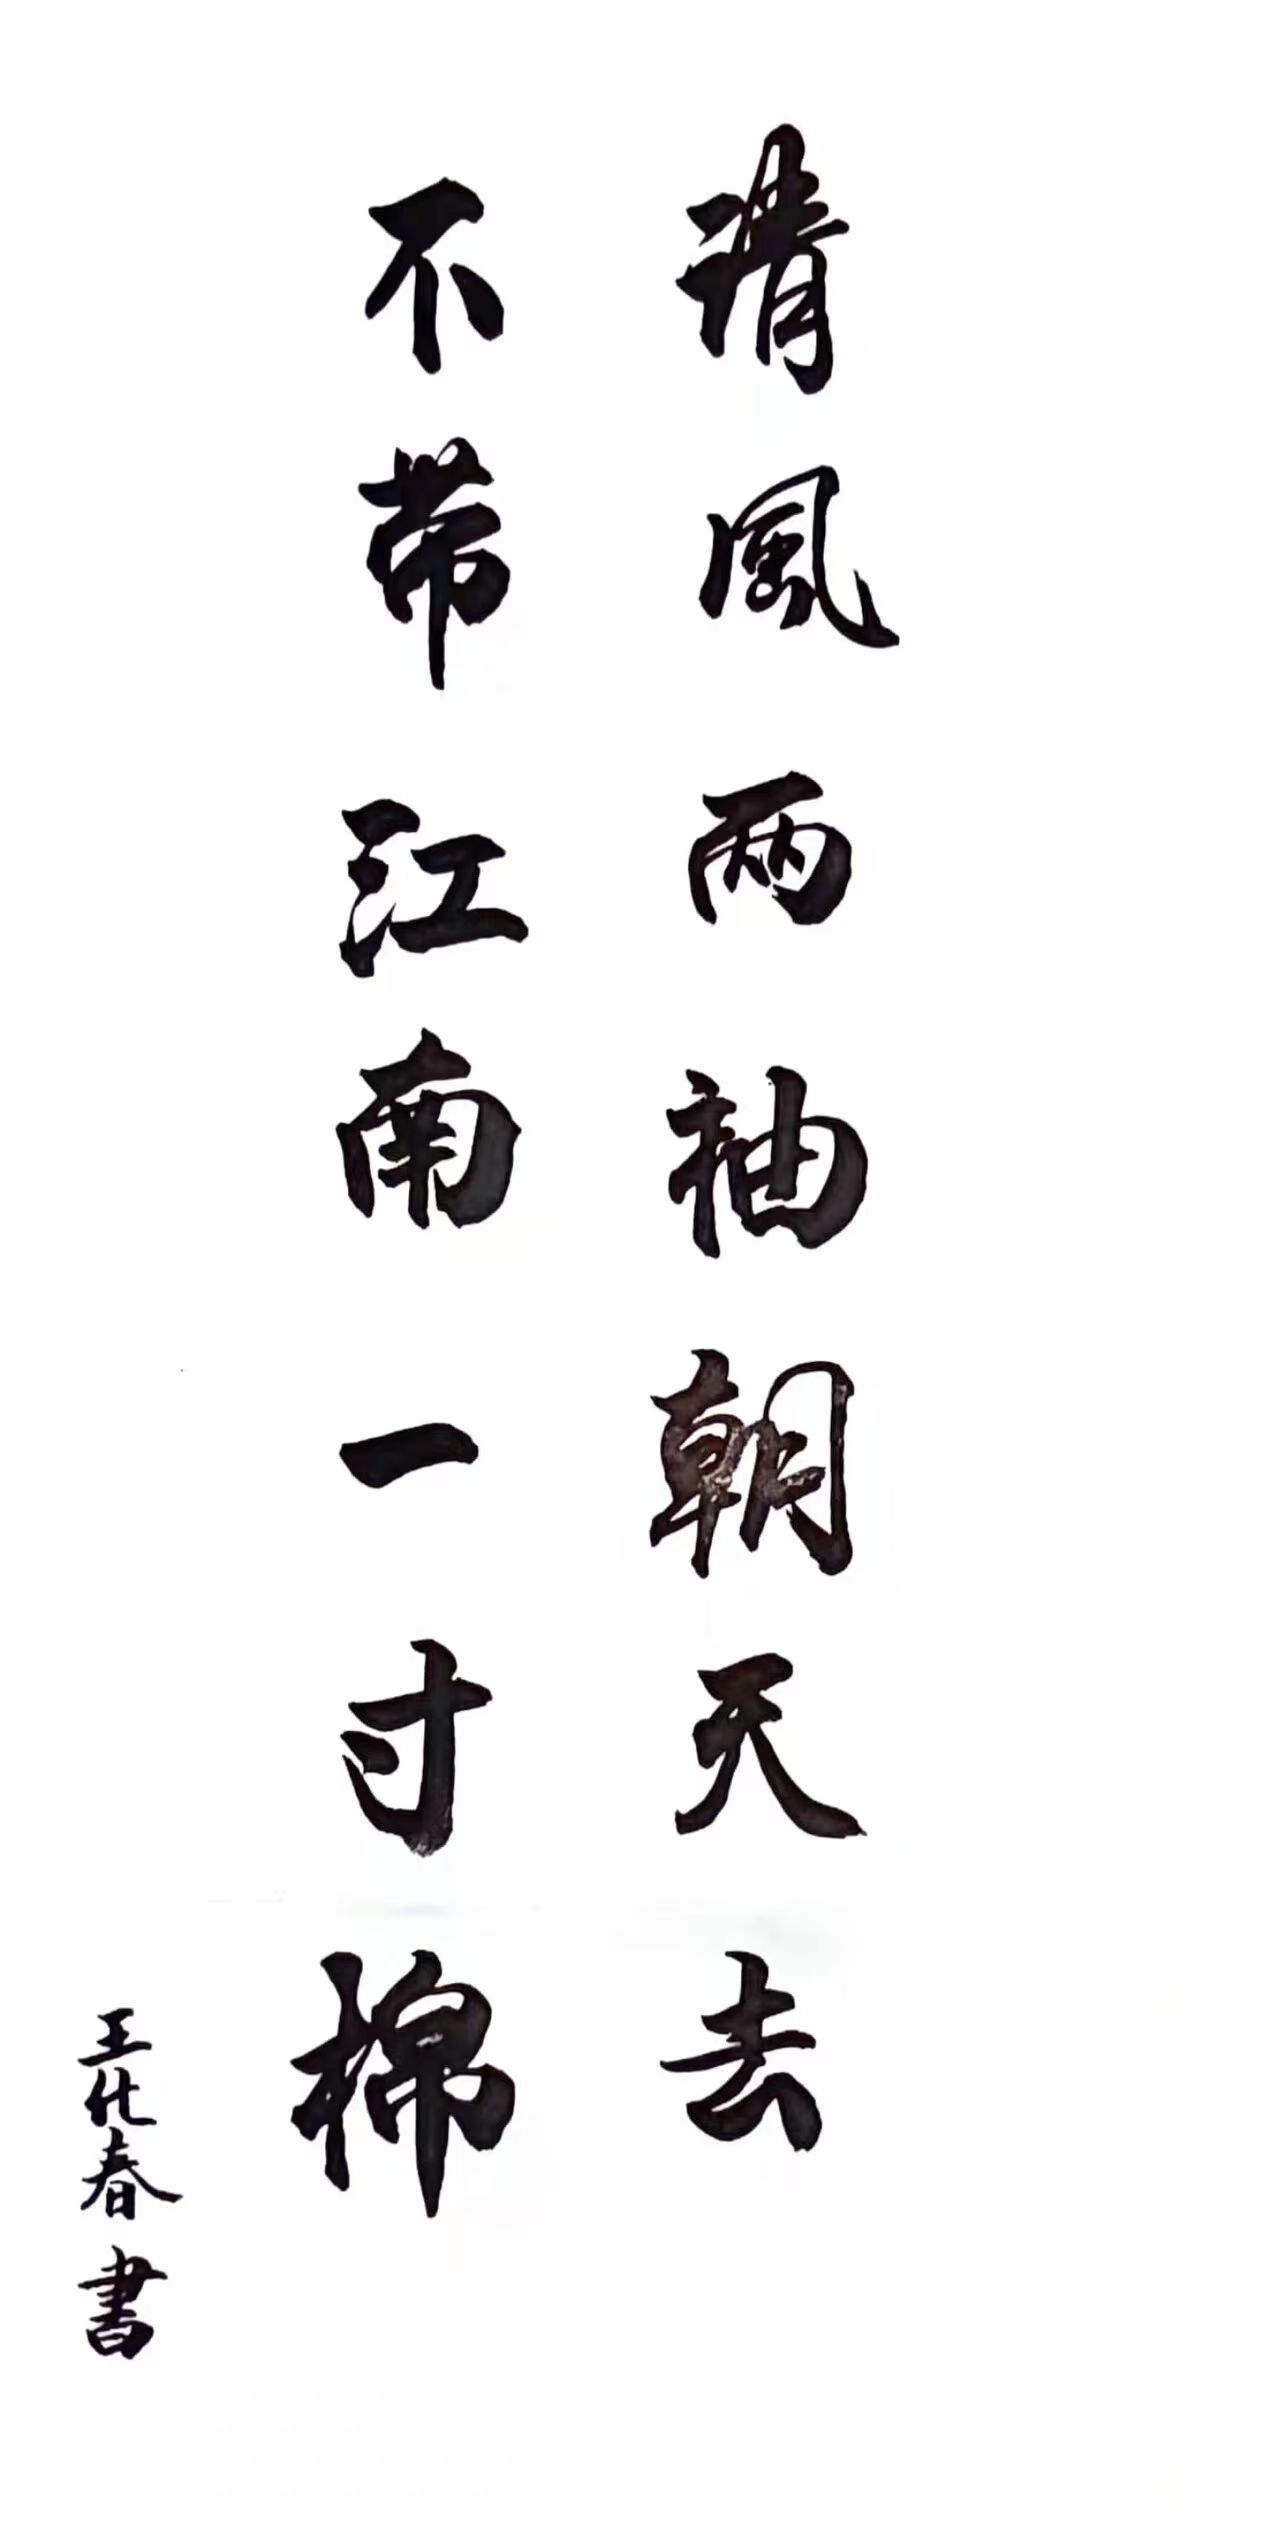 清風两袖朝天去
不带江南一寸棉
王化春書